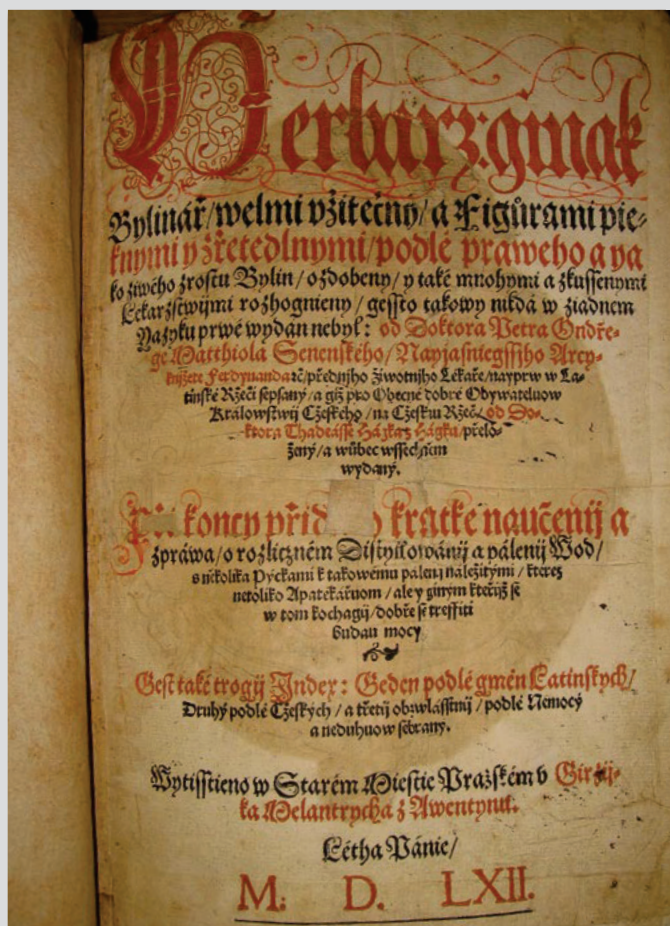 Herbarz: ginak
Bylinář / welmi vžitečny / a Figůrami pie-
knymi y zřetedlnymi / podlé praweho a ya
ko žiwého zrostu Bylin / ozdobeny / y také mnohymi a zkussenymi
Lékařstwijmi rozhognieny / gessto takowy nikdá w žiadnem
Yazyku prwé wydán nebyl: od Doktora Petra Ondře-
ge Matthiola Senenského / Nayjasniegssijho Arcy-
knijžete Ferdynanda ꝛč / přednijho žiwotnijho Lékaře / nayprw w La-
tinské Ržeči sepsaný / a giž pro Obecné dobré Obywateluow
Králowstwij Cžeského / na Cžeskau Ržeč / od Do-
ktora Thadeásse Hájka z Hágku / přelo-
žený / a wůbec wssechněm
wydaný.
koncy přid o kratké naučenij a
zpráwa / o rozliczném Distyllowánij a pálenij Wod /
s niekolika Pýckami k takowému palenij náležitými / kterez
netoliko Apatekářuom / ale y giným kteřijž se
w tom kochagij / dobře se treffiti
budau mocy
Gest také trogij Index: Geden podlé gmén Latinských /
Druhý podlé Cžeských / a třetij obzwlásstnij / podlé Nemocý
a neduhuow sebrany.
Wytisstieno w Starém Miestie Pražském v Giržij-
ka Melantrycha z Awentynu.
Létha Pánie /
M. D. LXII.